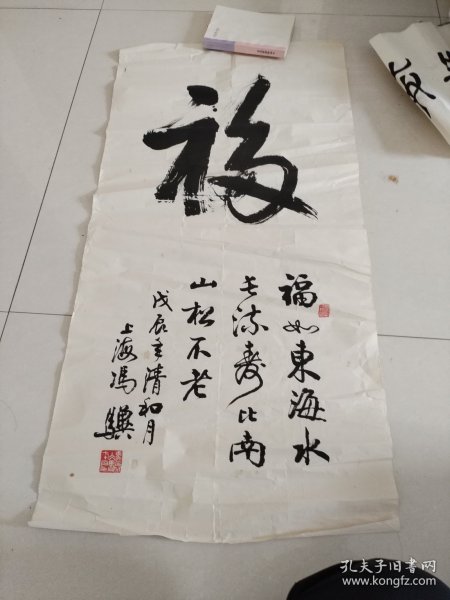 福
福如東海水
長流壽比南
山松不老
戊辰年清和月
上海馮驥
孔夫子旧书网
www.kongfz.com